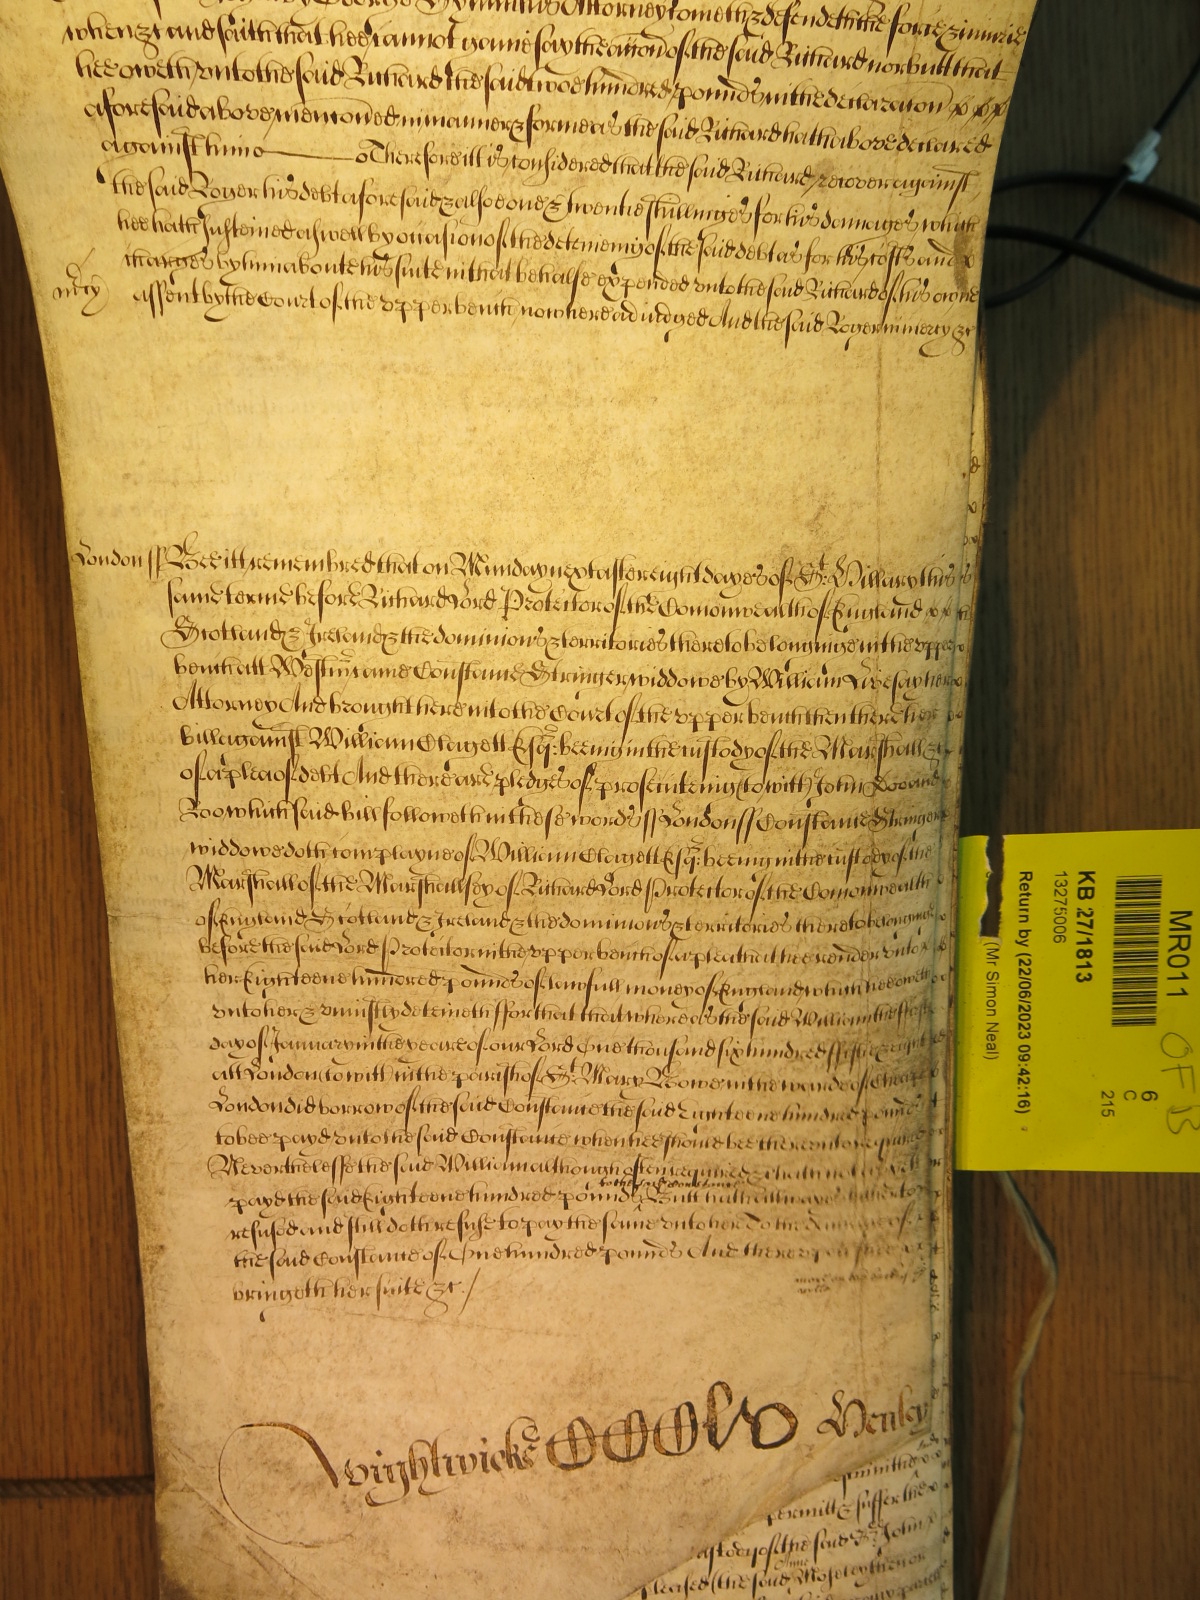 by George Attorney cometh & defendeth the force & iniurie
when &c and saith that hee cannot gainesay the accion of the said Richard nor butt that
hee oweth vnto the said Richard the said twoe hundred pounds in the declaracon
aforesaid above mencioned in manner & forme as the said Richard hath above declared
against him Therefore itt is considered that the said Richard recover against
the said Roger his debt aforesaid & alsoe one & twentie shillinges for his damages which
hee hath susteined aswell by occasion of the deteineing of the said debt as for his costs and
charges by him aboute his suite in that behalfe expended vnto the said Richard of his owne
mcy assent by the Court of the vpper bench now here adiudged And the said Roger in mercy &c
London ss Bee itt remembred that on Munday next after eight dayes of St. Hillary this
same terme before Richard Lord Protector of the Comonwealth of England
Scotland & Ireland & the dominions & territories thereto belonginge in the vpper
bench att Westmr came Constance Stringer widdowe by William Livesay her
Attorney And brought here into the Court of the vpper bench then there her
bill against William Clagett Esqr: beeing in the custody of the Marshall &c
of a plea of debt And there are pledges of prosecuteing (to witt) John Doo and
Roo which said bill followeth in these words ss London ss Constance Stringer
widdowe doth complayne of William Clagett Esqr: beeing in the custody of the
Marshall of the Marshallsey of Richard Lord Protector of the Comonwealth
of England Scotland & Ireland & the dominions & territories thereto belonginge
before the said Lord Protector in the vpper bench of a plea that hee render vnto
her Eighteene hundred pounds of lawfull money of England which hee oweth
vnto her & vniustly deteineth ffor that that whereas the said William the first
day of January in the yeare of our Lord One thousand six hundred fiftie & eight
att London (to witt) in the parish of St. Mary Bowe in the warde of Cheape
London did borrow of the said Constance the said Eighteene hundred pounds
to bee payd vnto the said Constance when hee should bee therevnto required
Neverthelesse the said William although often required &c hath not as yett
payd the said Eighteene hundred pounds to the said Constance Butt hath allwayes hitherto
refused and still doth refuse to pay the same vnto her To the damage of
the said Constance of One hundred pounds And thereof
bringeth her suite &c./
Wightwicke Henley
committed
permitt & suffer the
custody of the said Sr John
pleased (the said Moseley then
MR011
6
C
215
KB 27/1813
13275006
Return by (22/06/2023 09:42:16)
(Mr Simon Neal)